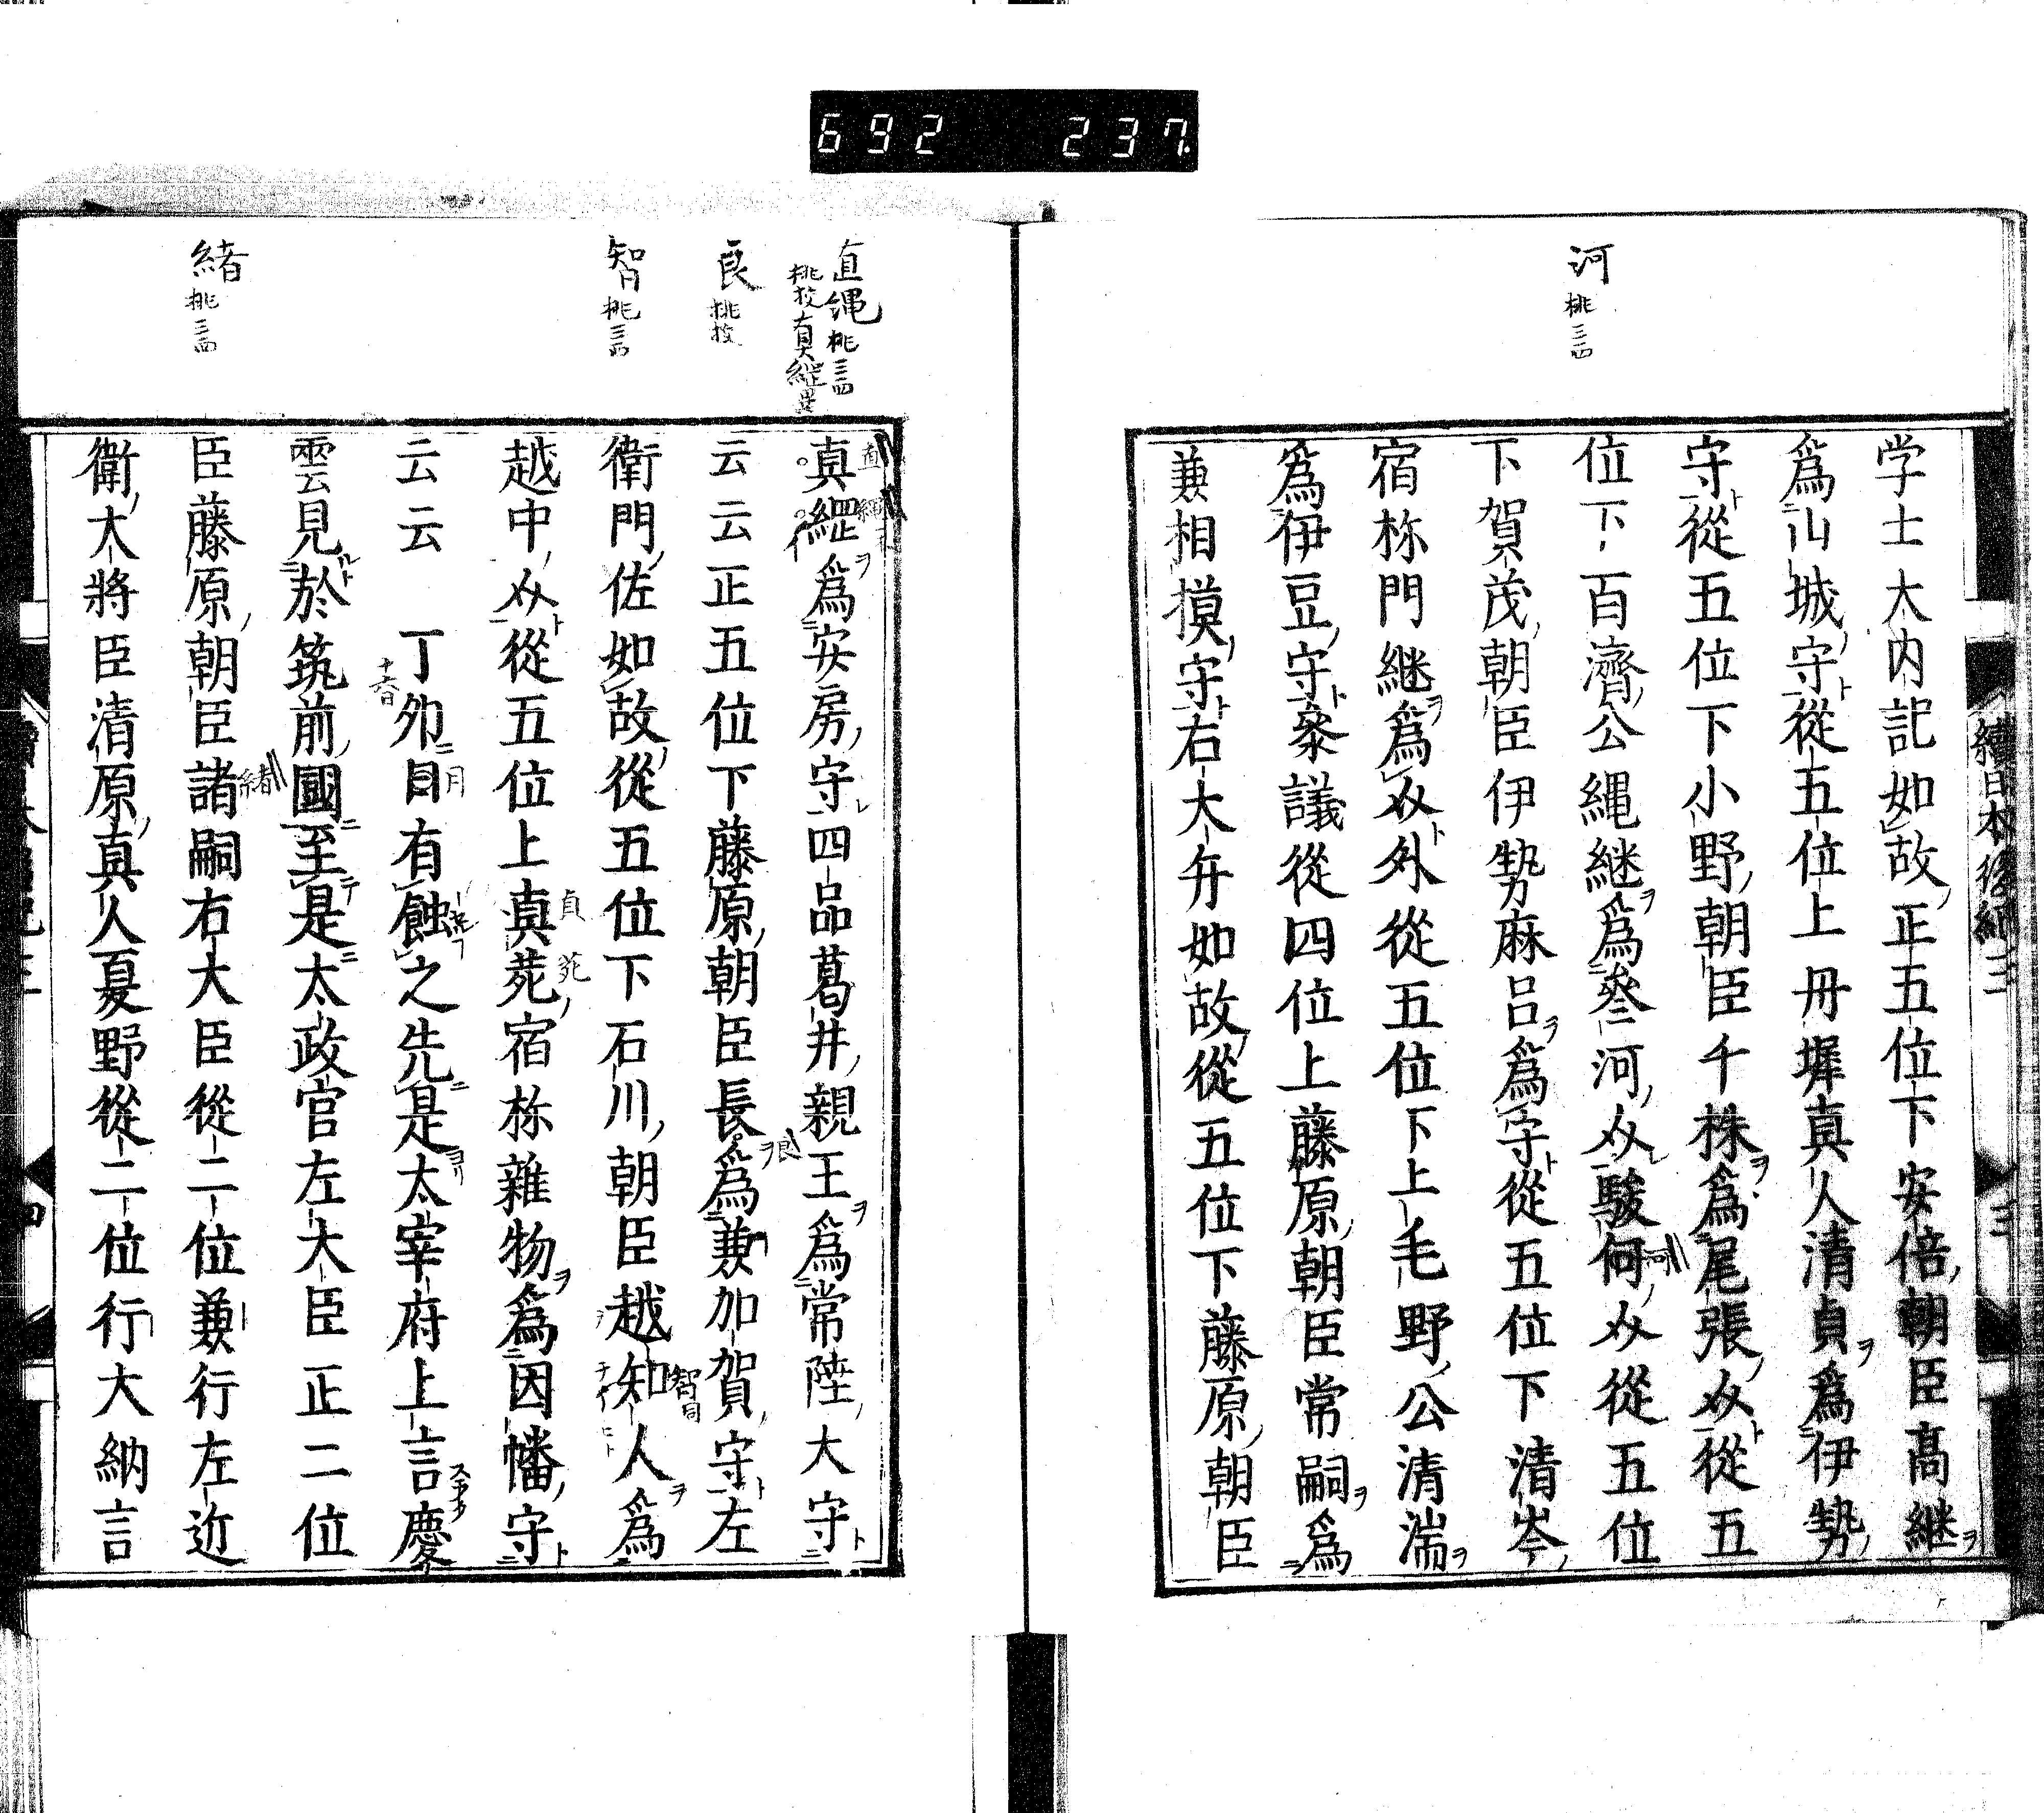 692 237
河 桃三高
学士大内記如故正五位下安倍朝臣高継
為山城守從五位上丹墀真人清貞為伊勢
守從五位下小野朝臣千株為尾張从從五
位下百濟公縄継為叄河从駿何从從五位
下賀茂朝臣伊勢麻呂為守從五位下清岑
宿祢門継為从外從五位下上毛野公清湍
為伊豆守叅議從四位上藤原朝臣常嗣為
兼相摸守右大弁如故從五位下藤原朝臣
續日本後紀三
三
直縄 桃三高
桃校 真縱
良 桃校
智 桃三高
緒 桃三高
真縱為安房守四品葛井親王為常陸大守
云云正五位下藤原朝臣長為兼加賀守左
衛門佐如故從五位下石川朝臣越知人為
越中从從五位上真菀宿祢雜物為因幡守
云云 丁夘日有蝕之先是太宰府上言慶
雲見於筑前國至是太政官左大臣正二位
臣藤原朝臣諸嗣右大臣從二位兼行左近
衛大將臣清原真人夏野從二位行大納言